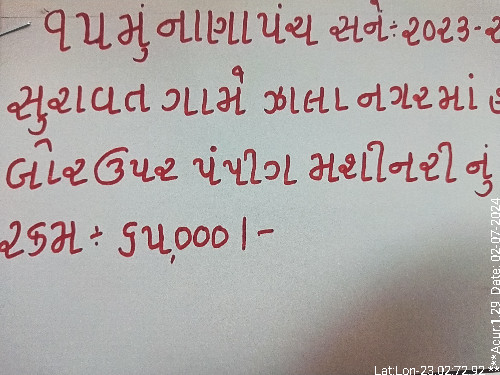 ૧૫ મું નાણા પંચ સને:૨૦૨૩-૨
સુરાવત ગામે ઝાલા નગરમાં
બોર ઉપર પંપીગ મશીનરી નું
રકમ ÷ ૬૫,૦૦૦/-
Lat:Lon-23.02:72.92 ***Acur:1.29 Date: 02-07-2024